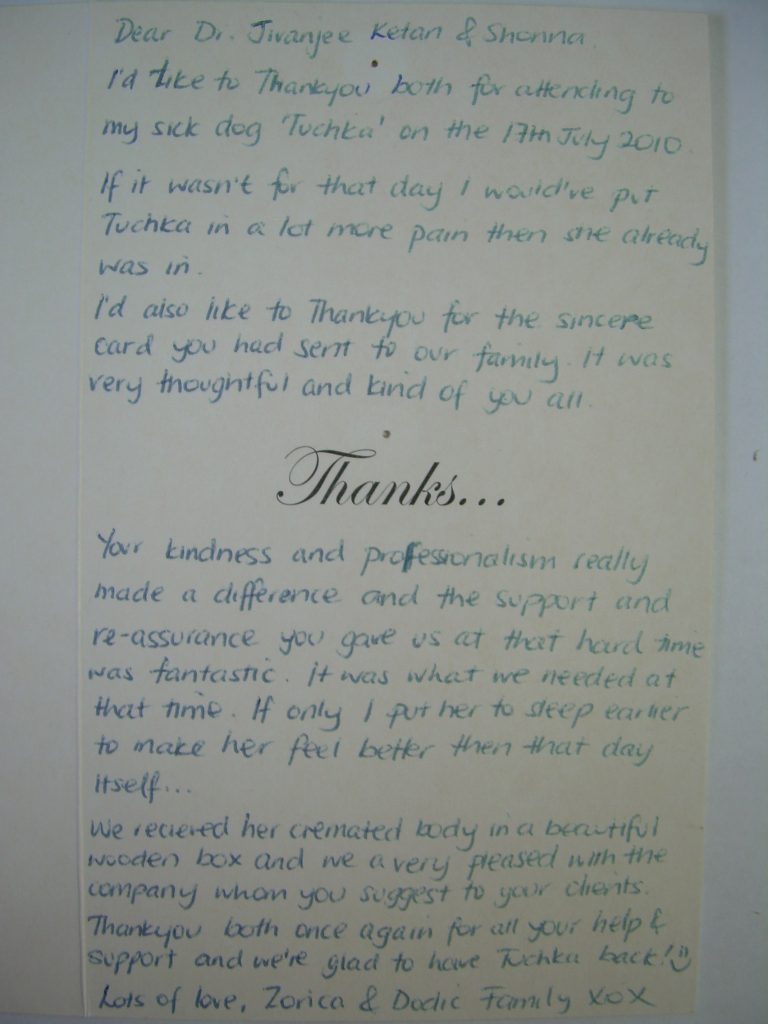 Dear Dr. Jivanjee Ketan & Shonna.
I'd like to Thankyou both for attending to
my sick dog 'Tuchka' on the 17th July 2010.
If it wasn't for that day I would've put
Tuchka in a lot more pain then she already
was in.
I'd also like to Thankyou for the sincere
card you had sent to our family. It was
very thoughtful and kind of you all.
Thanks...
Your kindness and professionalism really
made a difference and the support and
re-assurance you gave us at that hard time
was fantastic. It was what we needed at
that time. If only I put her to sleep earlier
to make her feel better then that day
itself...
We recieved her cremated body in a beautiful
wooden box and we a very pleased with the
company whom you suggest to your clients.
Thankyou both once again for all your help &
support and we're glad to have Tuchka back! ☺
Lots of love, Zorica & Dodic Family XOX